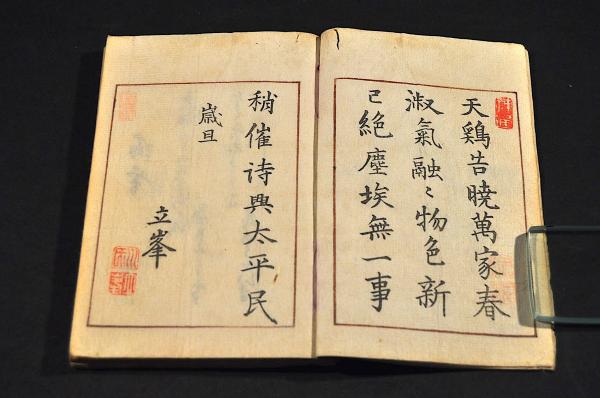 天鷄告曉萬家春
淑氣融〻物色新
已絶塵埃無一事
稍催诗興太平民
歳旦
立峯